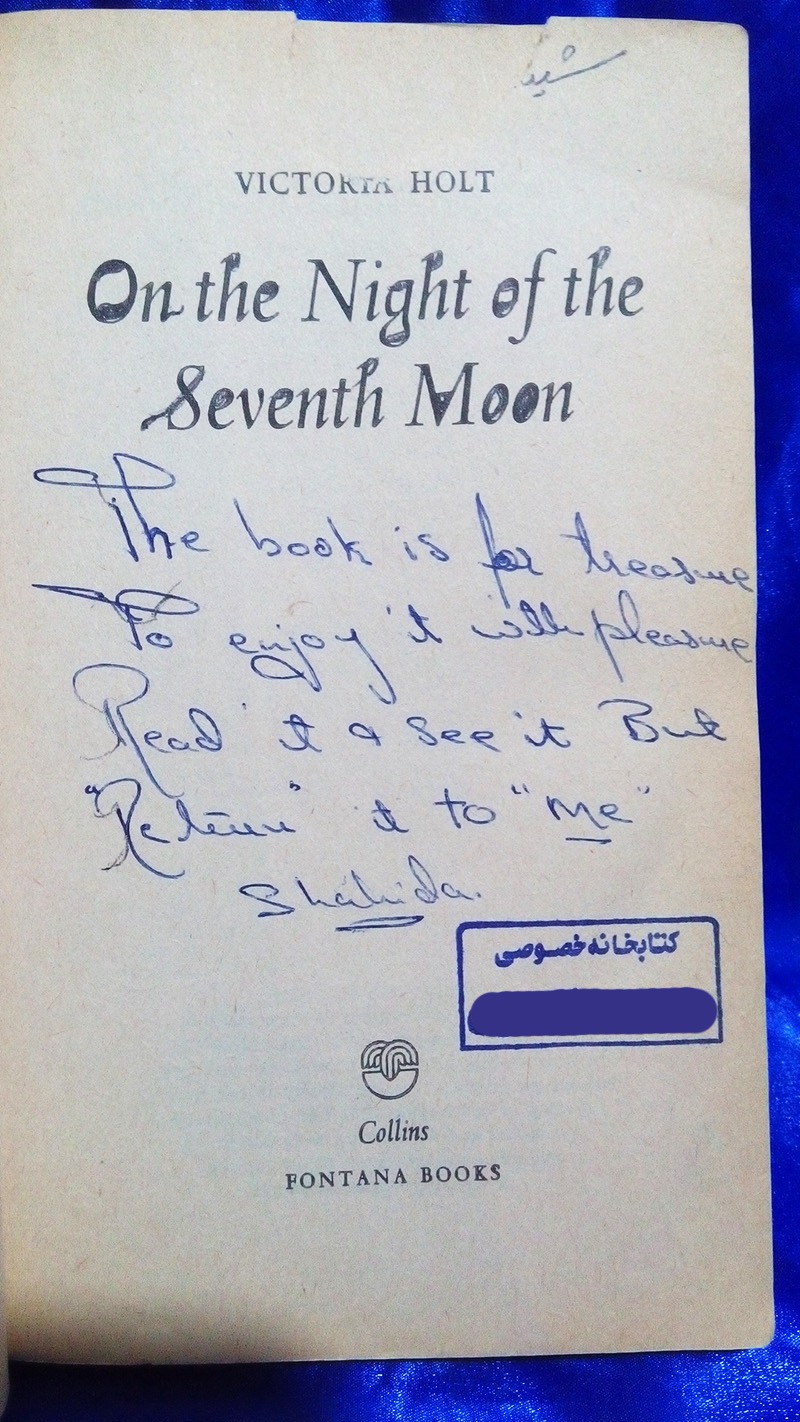 VICTORIA HOLT
On the Night of the
Seventh Moon
The book is for treasure
To enjoy it with pleasure
Read it & see it But
"Return" it to "me"
Shahida.
کتابخانه خصوصی
Collins
FONTANA BOOKS